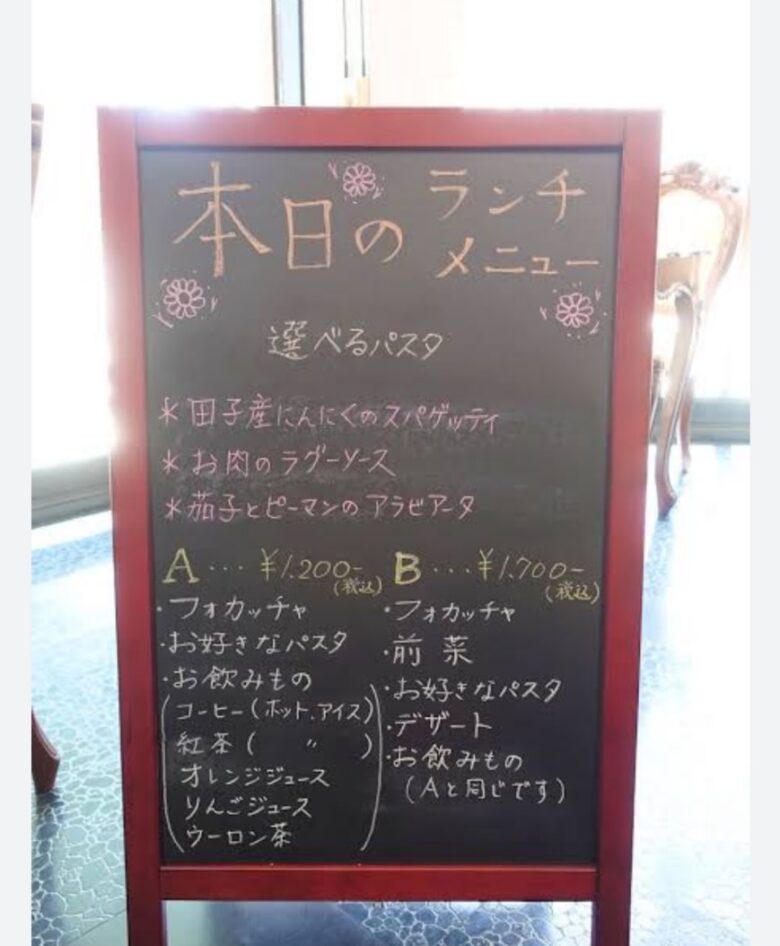 本日の ランチ
メニュー
選べるパスタ
*田子産にんにくのスパゲッティ
*お肉のラグーソース
*茄子とピーマンのアラビアータ
A...¥1.200-
(税込)
・フォカッチャ
・お好きなパスタ
・お飲みもの
(コーヒー(ホット.アイス)
紅茶(　〃　)
オレンジジュース
りんごジュース
ウーロン茶)
B...¥1.700-
(税込)
・フォカッチャ
・前菜
・お好きなパスタ
・デザート
・お飲みもの
(Aと同じです)